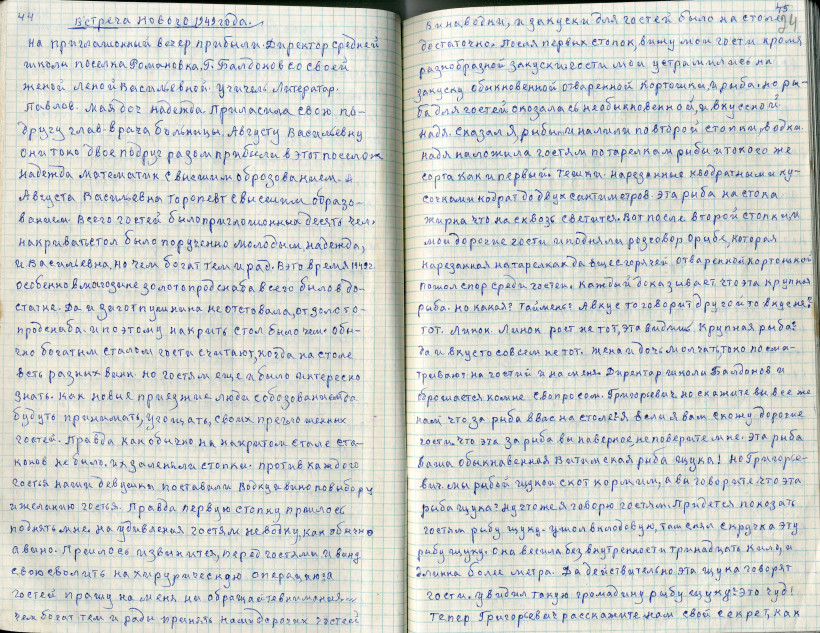 44
Встреча Нового 1949 года.
на приглашонный вечер прибыли. Директор средней
школы поселка Романовка, Г. Балдонов со своей
женой Леной Васильевной. Учитель Литератор.
Павлов. Мая доч надежда Пригласила свою по-
другу глав-врача больницы, Августу Васильевну
они токо двое подруг разом прибыли в этот поселок
надежда Математик с высшим оброзованием. А
Августа Васильевна Торопевт с высшим образо-
ванием. Всего гостей было приглошонных десять чел,
накривать стол было порученно молодым, надежда,
и Васильевна, но чем богат тем и рад. В это время 1949 г.
особенно в магозине золотопродснаба всего было в до-
статке. Да и загот пушнина не отставала, от золото-
продснаба. и поэтому накрить стол было чем. обы-
чно богатым сталом гости считают, когда на столе
есть разных вини. но гостям еще и было интересно
знать. как новые приезжие люди с оброзованием
будуть принимать, угощать, своих приглошенных
гостей. Правда как обично на накритом стале ста-
конов не было. их заменили стопки. против каждого
гостя наши девушки поставили водку и вино по выбору
и желанию гостя. Правда первую стопку пришлось
поднять мне. на удивления гостям не водку, как обычно
а вино. Пришлось извинится, перед гостями. и вину
свою свалить на хирургическую операцию
гостей прашу на меня не обращайте внимания.
чем богат тем и рады принять наших дорогих гостей
45
Вина водки, и закуски для гостей было на столе
достаточно. После первых стопок, вижу мои гости кроме
разнообразной закуски гости мои устрамились на
закуску обыкновенной отваренной картошки, и рыба. но ры-
ба для гостей сказалась необикновенной, и вкусной
надя. Сказал я, рыбы. и налили по второй стопки, водки.
надя наложила гостям по тарелкам рыбы и такого же
сорта как и первый. Тешки. нарезанные квадратными ку-
сочками кодрат до двух сантиметров. эта рыба на стока
жирна что на сквозь светится. Вот после второй стопки
мои дорогие гости и подняли разговор о рибе, которая
нарезанная на тарелках да в щесгорячей отваренной картошкой
пошол спор среди гостей. Каждый доказивает, что эта крупная
рыба. но какая? Таймень? А вкус то говорит другой то вкусней
тот. Линок. Линок рост не тот, эта видиш. Крупная рыба?
да и вкус то совсем не тот. жена и доч молчать, токо посма-
тривают на гостий и на меня. Директор школы Балдонов и
обрашается комне с вопросом. Григорьевич, но скажите вы все же
нам что за рыба в вас на столе? Я если я вам скожу дорогие
гости. что эта за риба вы наверное, не поверите мне. Эта рыба
Ваша обыкнавенная Витимская рыба щука! Но Григорье-
вич мы рыбой щукой скот кормим, а вы говорите что эта
рыба щука? ну чтож я говорю гостям. Придется показать
гостям рыбу щуку. ушол в кладовую, там снял с кручка эту
рыбу щуку. она весила без внутренности тринадцать кило, и
длинна более метра. Да действительно эта щука говорят
гости. увидил такую громадину рыбу щуку? Это чуд!
Тепер Григорьевич расскажите нам свой секрет, как